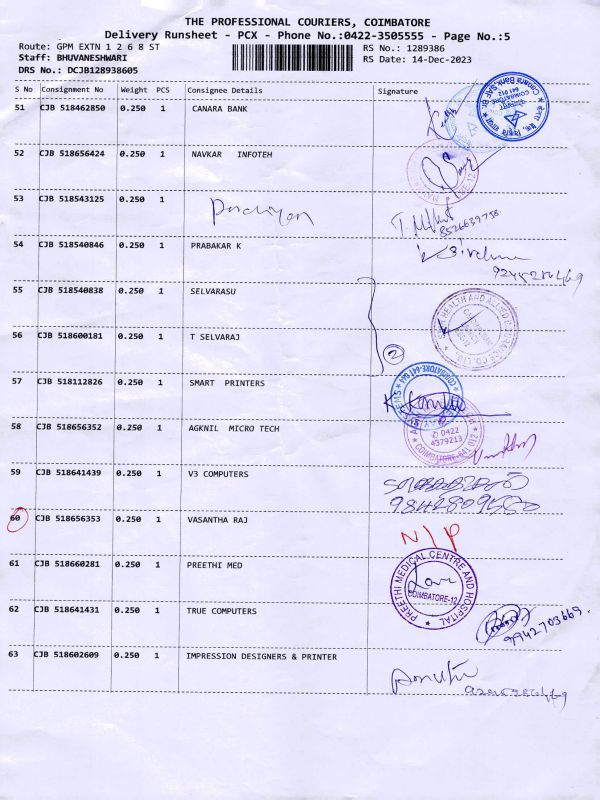 THE PROFESSIONAL COURIERS, COIMBATORE
Delivery Runsheet - PCX - Phone No.:0422-3505555 - Page No.:5
Route: GPM EXTN 1 2 6 8 ST
RS No.: 1289386
Staff: BHUVANESHWARI
RS Date: 14-Dec-2023
DRS No.: DCJB128938605
S No Consignment No Weight PCS Consignee Details Signature
51 CJB 518462850 0.250 1 CANARA BANK
52 CJB 518656424 0.250 1 NAVKAR INFOTEH
53 CJB 518543125 0.250 1
8526639758
54 CJB 518540846 0.250 1 PRABAKAR K
55 CJB 518540838 0.250 1 SELVARASU
56 CJB 518600181 0.250 1 T SELVARAJ
2
57 CJB 518112826 0.250 1 SMART PRINTERS
COIMBATORE-641 044
58 CJB 518656352 0.250 1 AGKNIL MICRO TECH
0422
4379213
COIMBATORE-641 012
59 CJB 518641439 0.250 1 V3 COMPUTERS
60 CJB 518656353 0.250 1 VASANTHA RAJ
N/P
61 CJB 518660281 0.250 1 PREETHI MED
PREETHI MEDICAL CENTRE AND HOSPITAL
COIMBATORE-12
62 CJB 518641431 0.250 1 TRUE COMPUTERS
9942703669.
63 CJB 518602609 0.250 1 IMPRESSION DESIGNERS & PRINTER